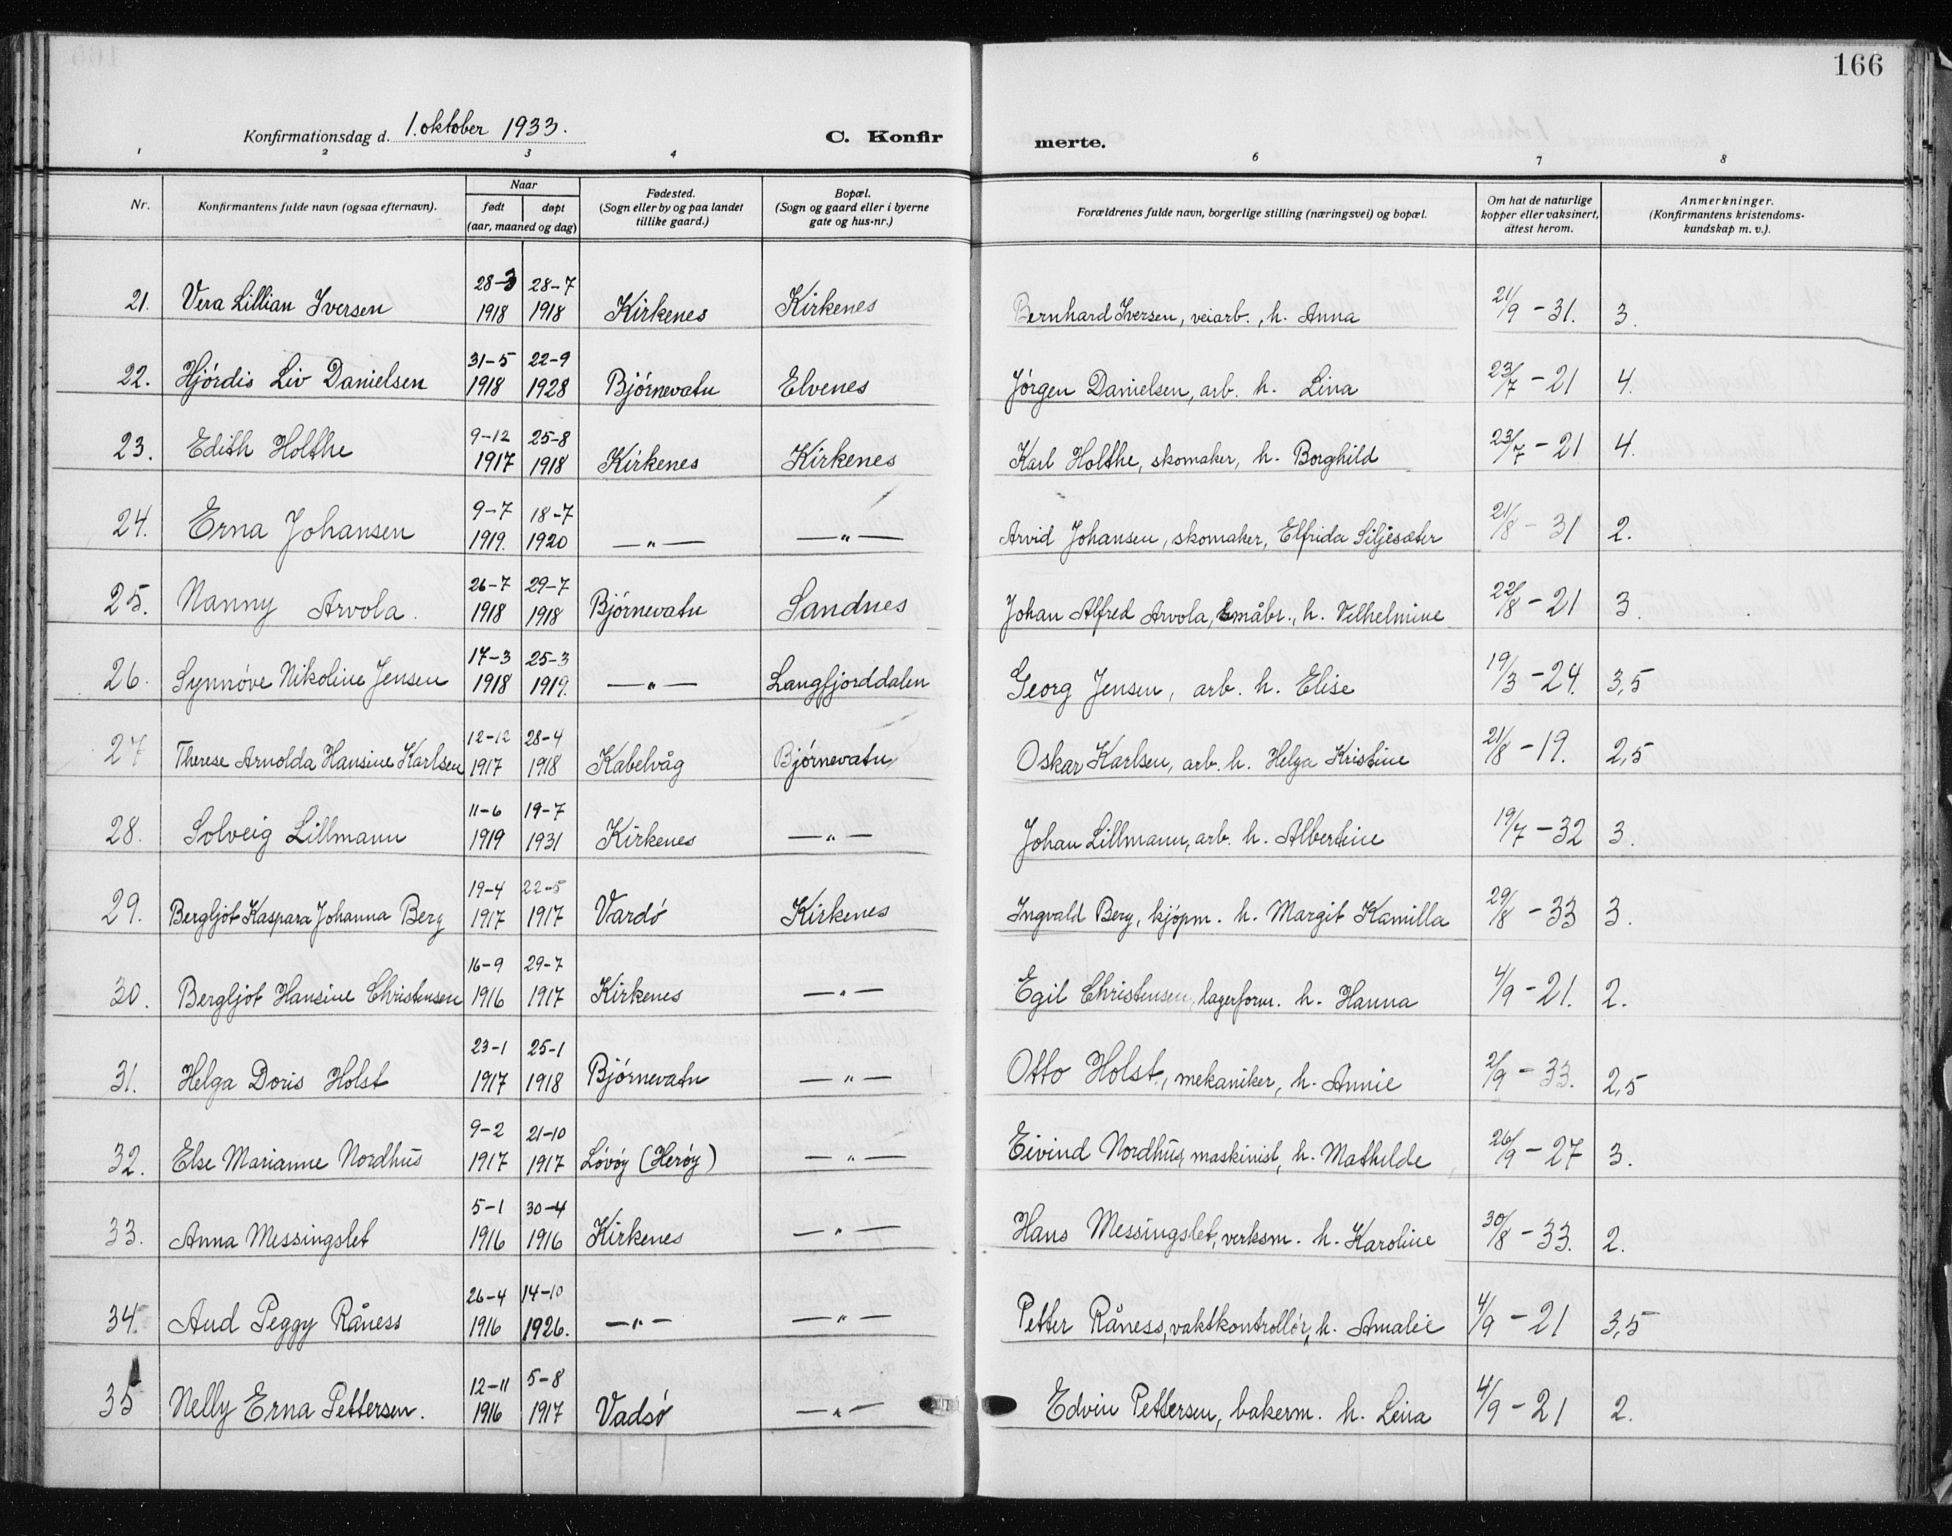 166
Konfirmationsdag d. 1. oktober 1933. C. Konfir merte.
1 2 3 4 6 7 8
Nr. Konfirmantens fulde navn (ogsaa efternavn). Naar født døpt (aar, maaned og dag) Fødested. (Sogn eller by og paa landet tillike gaard.) Bopæl. (Sogn og gaard eller i byerne gate og hus-nr.) Forældrenes fulde navn, borgerlige stilling (næringsvei) og bopæl. Om hat de naturlige kopper eller vaksinert, attest herom. Anmerkninger. (Konfirmantens kristendoms-kundskap m. v.).
21. Vera Lillian Iversen 28-3 1918 28-7 1918 Kirkenes Kirkenes Bernhard Iversen, veiarb., h. Anna 21/9 - 31. 3.
22. Hjørdis Liv Danielsen 31-5 1918 22-9 1928 Bjørnevatn Elvenes Jørgen Danielsen, arb. h. Lina 23/7 - 21 4.
23. Edith Holthe 9-12 1917 25-8 1918 Kirkenes Kirkenes Karl Holthe, skomaker, h. Borghild 23/7 - 21 4.
24. Erna Johansen 9-7 1919. 18-7 1920 — " — — " — Arvid Johansen, skomaker, Elfrida Siljesæter 21/8 - 31 2.
25. Nanny Arvola. 26-7 1918 29-7 1918 Bjørnevatn Sandnes Johan Alfred Arvola, småbr., h. Vilhelmine 22/8 - 21 3.
26. Synnøve Nikoline Jensen 17-3 1918 25-3 1919. — " — Langfjorddalen Georg Jensen, arb. h. Elise 19/3 - 24. 3,5
27 Therese Arnolda Hansine Karlsen 12-12 1917 28-4 1918 Kabelvåg Bjørnevatn Oskar Karlsen, arb. h. Helga Kristine 21/8 - 19. 2,5
28. Solveig Lillmann 11-6 1919 19-7 1931 Kirkenes — " — Johan Lillmann, arb. h. Albertine 19/7 - 32 3.
29. Bergljot Kaspara Johanna Berg 19-4 1917 22-5 1917 Vardø Kirkenes Ingvald Berg, kjøpm. h. Margit Kamilla 29/8 - 33 3.
30. Bergljot Hansine Christensen 16-9 1916 29-7 1917 Kirkenes — " — Egil Christensen, lagerform. h. Hanna 4/9 - 21. 2.
31. Helga Doris Holst 23-1 1917 25-1 1918 Bjørnevatn — " — Otto Holst, mekaniker, h. Annie 2/9 - 33. 2,5
32. Else Marianne Nordhus 9-2 1917 21-10 1917 Løvøy (Herøy) — " — Eivind Nordhus, maskinist, h. Mathilde 26/9 - 27 3.
33. Anna Messingslet 5-1 1916 30-4 1916 Kirkenes — " — Hans Messingslet, verksm. h. Karoline 30/8 - 33. 2.
34. Aud Peggy Råness 26-4 1916 14-10 1926. — " — — " — Petter Råness, vaktkontrollør, h. Amalie 4/9 - 21 3,5
35 Nelly Erna Pettersen. 12-11 1916 5-8 1917 Vadsø — " — Edvin Pettersen, bakerm. h. Lina 4/9 - 21 2.